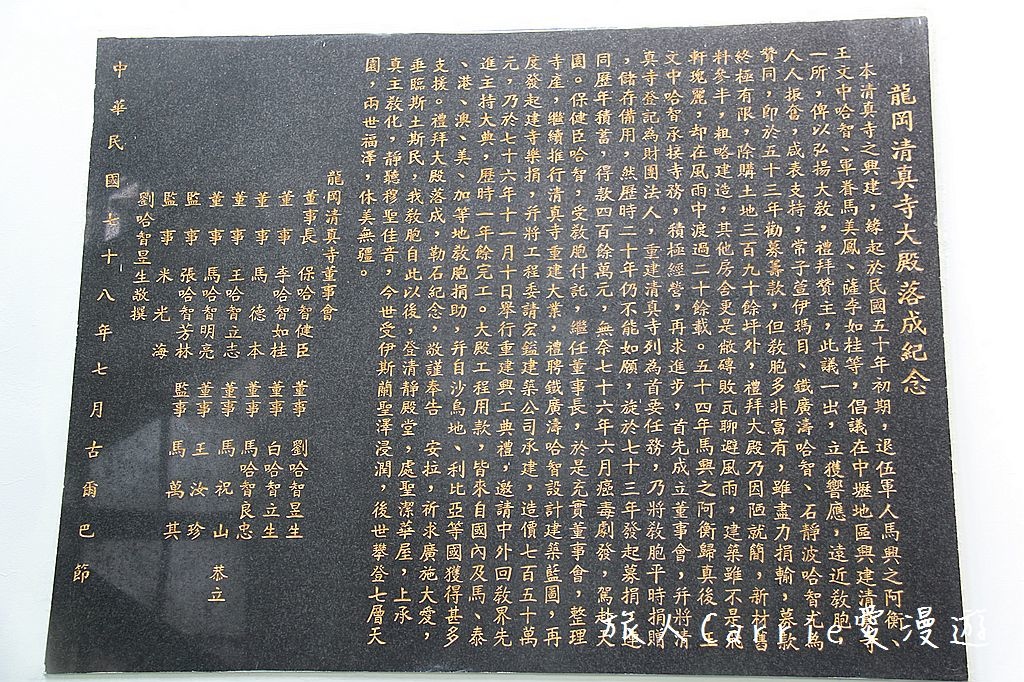 龍岡清真寺大殿落成紀念
本清真寺之興建，緣起於民國五十年初期，退伍軍人馬興之阿衡
王文中哈智、軍眷馬美鳳、薩李如桂等，倡議在中壢地區興建清真寺
一所，俾以弘揚大教，禮拜贊主，此議一出，立獲響應，遠近教胞
人人振奮，咸表支持，常子萱伊瑪目、鐵廣濤哈智、石靜波哈智尤為
贊同，即於五十三年勸募籌款，但教胞多非富有，雖盡力捐輸，募款
終極有限，除購土地三百九十餘坪外，禮拜大殿乃因陋就簡，新材舊
料參半，粗略建造，其他房舍更是敝磚敗瓦聊避風雨，建築雖不是飛
軒瑰麗，却在風雨中渡過二十餘載。五十四年馬興之阿衡歸真後，王
文中哈智承接寺務，積極經營，再求進步，首先成立董事會，并將清
真寺登記為財團法人，重建清真寺列為首要任務，乃將教胞平時捐贈
，儲存備用，然歷時二十年仍不能如願，旋於七十三年發起募捐，連
同歷年積蓄，得款四百餘萬元，無奈七十六年六月癌毒劇發，駕赴天
園。保健臣哈智，受教胞付託，繼任董事長，於是充實董事會，整理
寺產，繼續推行清真寺重建大業，禮聘鐵廣濤哈智設計建築藍圖，再
度發起建寺樂捐，并將工程委請宏鎰建築公司承建，造價七百五十萬
元，乃於七十六年十一月十日舉行重建興工典禮，邀請中外回教界先
進主持大典，歷時一年餘完工。大殿工程用款，皆來自國內及馬、泰
、港、澳、美、加等地教胞捐助，并自沙烏地、利比亞等國獲得甚多
支援。禮拜大殿落成，勒石紀念，敬謹奉告 安拉，祈求廣施大愛，
垂臨斯土斯民，我教胞自此以後，登清靜殿堂，處聖潔華屋，上承
真主教化，靜聽穆聖佳音，今世受伊斯蘭聖澤浸潤，後世攀登七層天
園，兩世福澤，休美無疆。
龍岡清真寺董事會
董事長 保哈智健臣 董事 劉哈智昱生
董事 李哈智如桂 董事 白哈智立生
董事 馬德本 董事 馬哈智良忠
董事 王哈智立志 董事 馬祝山 恭立
監事 馬哈智明亮 董事 王汝珍
監事 張哈智芳林 監事 馬萬其
監事 米光海
劉哈智昱生敬撰
中華民國七十八年七月古爾巴節
旅人Carrie愛漫遊